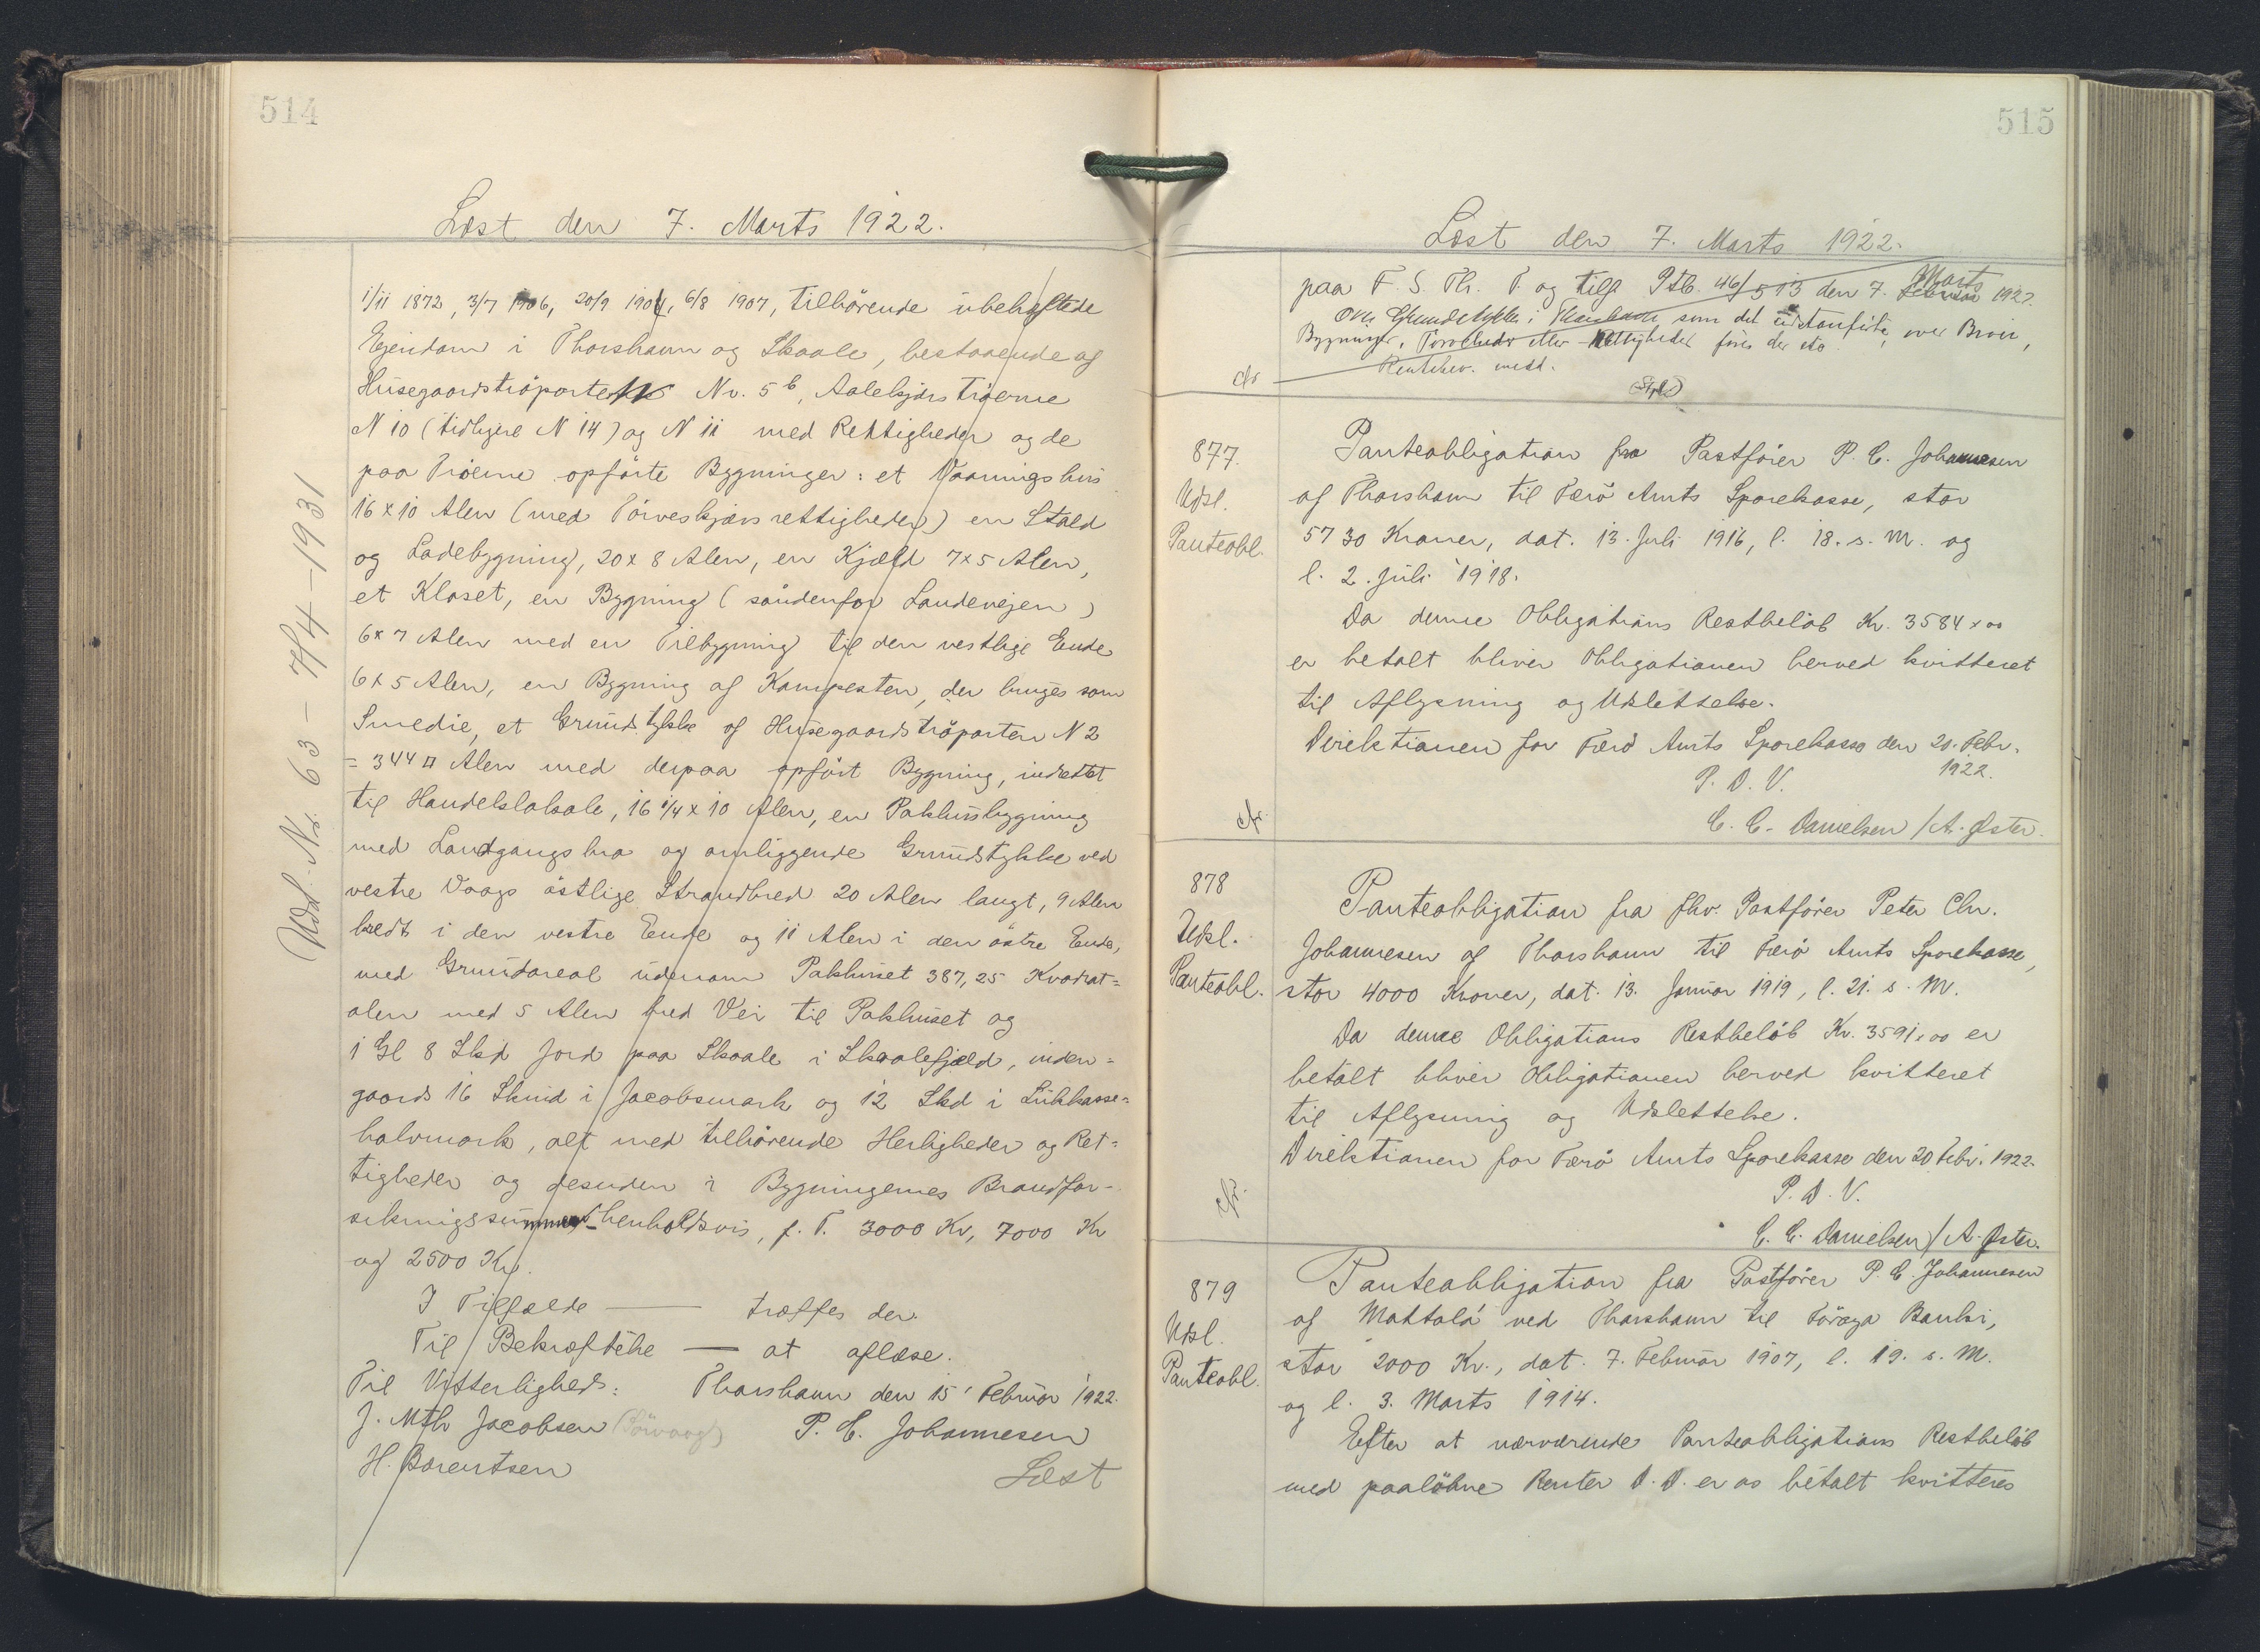 514
Læst den 7. Marts 1922.
Udsl. Nr. 63 - 7/4 - 1931
1/11 1872, 3/7 1906, 20/9 1904, 6/8 1907, tilhörende übehæftede
Ejendom i Thorshavn og Skaale, bestaaende af
Husegaardströparten Nr. 5b, Aalekjærs Tröerne
N 10 (tidligere N 14) og N 11 med Rettigheder og de
paa Tröerne opförte Bygninger: et Vaaningshus
16 x 10 Alen (med Törveskjærsrettigheder) en Stald
og Ladebygning, 20 x 8 Alen, en Kjæld 7 x 5 Alen,
et Kloset, en Bygning (söndenfor Landevejen)
6 x 7 Alen med en Tilbygning til den vestlige Ende
6 x 5 Alen, en Bygning af Kampesten, der bruges som
Smedie, et Grundstykke af Husegaardströparten N 2
= 344 □ Alen med derpaa opfört Bygning, indrettet
til Handelslokale, 16 1/4 x 10 Alen, en Pakhusbygning
med Landgangsbro og omliggende Grundstykke ved
vestre Vaags östlige Strandbred 20 Alen langt, 9 Alen
bredt i den vestre Ende og 11 Alen i den östre Ende,
med Grundareal udenom Pakhuset 387,25 Kvadrat=
alen med 5 Alen bred Vei til Pakhuset og
1 Gl 8 Skd Jord paa Skaale i Skaalefjæld, inden=
gaards 16 Skind i Jacobsmark og 12 Skd i Lükkasse=
halvmark, alt med tilhörende Herligheder og Ret=
tigheder og desuden i Bygningernes Brandfor-
sikringssummer henholdsvis, f. T. 3000 Kr, 7000 Kr
og 2500 Kr.
I Tilfælde — træffes der.
Til Bekræftelse — at aflæse.
Til Vitterlighed: Thorshavn den 15' Februar 1922.
J. Mth Jacobsen (Sörvaag) P. C. Johannesen
H. Barentsen Læst
515
Læst den 7. Marts 1922.
paa F. S. Th. T. og tilf Ptb. 46/513 den 7. Februar Marts 1922.
Over Grundstykke i Thorshavn som det
Bygninger, etc over Broer,
Rentebev. medd.
877.
Udsl.
Panteobl.
Panteobligation fra Postförer P. C. Johannesen
af Thorshavn til Færö Amts Sparekasse, stor
5730 Kroner, dat. 13. Juli 1916, l. 18. s. M. og
l. 2. Juli 1918.
Da denne Obligations Restbelöb Kr. 3584 x 00
er betalt bliver Obligationen herved kvitteret
til Aflysning og Udslettelse.
Direktionen for Færö Amts Sparekasse den 20. Febr.
1922.
P. D. V.
C. C. Danielsen / A. Øster.
878
Udsl.
Panteobl.
Panteobligation fra fhv. Postförer Peter Chr.
Johannesen af Thorshavn til Færö Amts Sparekasse,
stor 4000 Kroner, dat. 13. Januar 1919, l. 21. s. M.
Da denne Obligations Restbelöb Kr. 3591,00 er
betalt bliver Obligationen herved kvitteret
til Aflysning og Udslettelse.
Direktionen for Færö Amts Sparekasse den 20 Febr. 1922.
P. D. V.
C. C. Danielsen / A. Øster.
879
Udsl.
Panteobl.
Panteobligation fra Postförer P. C. Johannesen
af Mattalá ved Thorshavn til Föroya Banki,
stor 2000 Kr., dat. 7. Februar 1907, l. 19. s. M.
og l. 3. Marts 1914.
Efter at nærværende Panteobligations Restbelöb
med paalöbne Renter D. D. er os betalt kvitteres